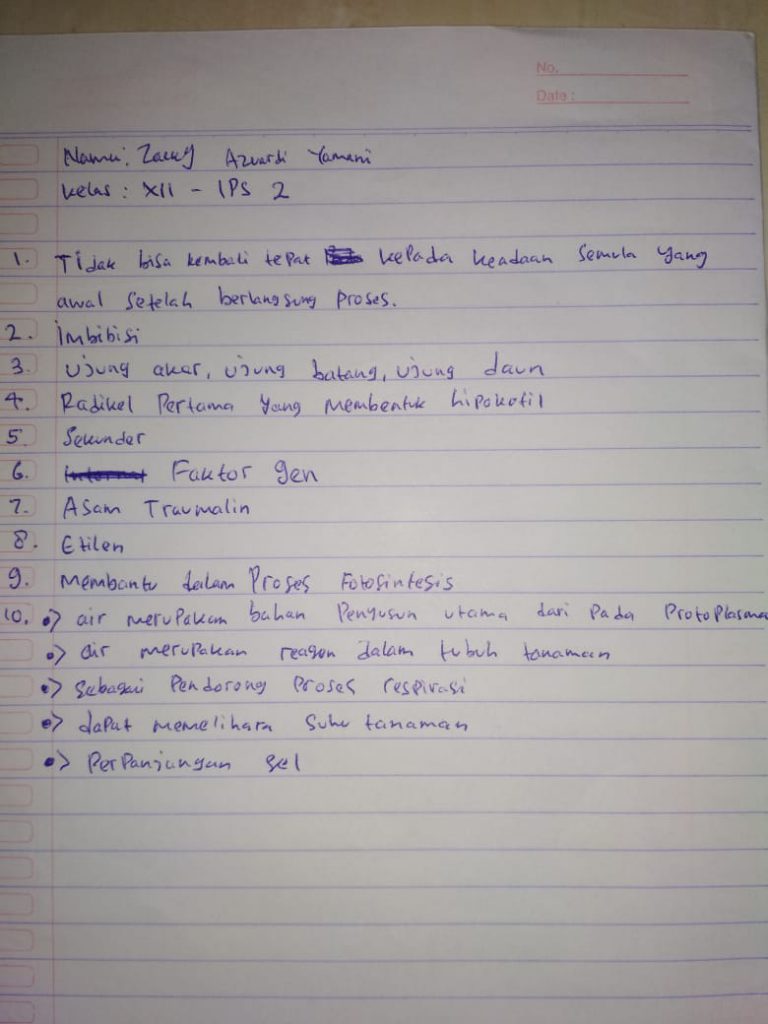 No.
Date :
Nama: Zacky Azuardi Yamani
Kelas : XII - IPS 2
1. Tidak bisa kembali tepat kepada keadaan semula yang
awal setelah berlangsung proses.
2. Imbibisi
3. Ujung akar, ujung batang, ujung daun
4. Radikel Pertama yang membentuk hipokotil
5. Sekunder
6. Faktor gen
7. Asam Traumalin
8. Etilen
9. Membantu dalam Proses Fotosintesis
10. •> air merupakan bahan Penyusun utama dari pada Protoplasma
•> air merupakan reagen dalam tubuh tanaman
•> sebagai Pendorong Proses respirasi
•> dapat memelihara suhu tanaman
•> Perpanjangan sel